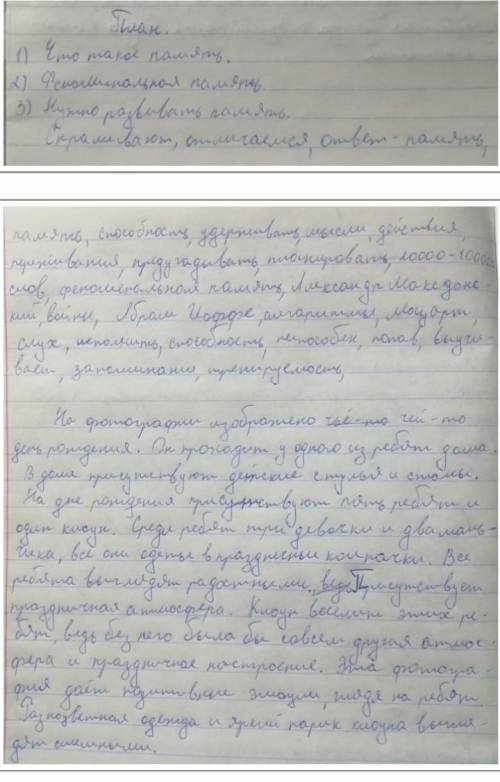 План.
1) Что такое память.
2) Феноминальная память
3) Нужно развивать память.
Спрашивают, отличаемся, ответ - память,
память, способность, удерживать, мысли, действия,
переживания, предугадывать, планировать, 20000-100000
слов, феноменальная память, Александр Македонс-
кий, воины, Абрам Иоффе, алгаритмы, Моцарт,
слух, исполнить, способность, неспособен, попав, выучи-
вает, запоминания, тренируемость,
На фотографии изображено чьё-то чей-то
день рождения. Он проходит у одного из ребят дома.
В доме присутствуют детские стулья и столы.
На дне рождения присутствуют пять ребят и
один клоун. Среди ребят три девочки и два маль-
чика, все они одеты в праздничные колпачки. Все
ребята выглядят радостными, ведь Присутствует
праздничная атмосфера. Клоун веселит этих ре-
бят, ведь без него была бы совсем другая атмос-
фера и праздничное настроение. Эта фотогра-
фия даёт позитивные эмоции, глядя на ребят.
Разноцветная одежда и яркий парик клоуна выгля-
дят смешными.